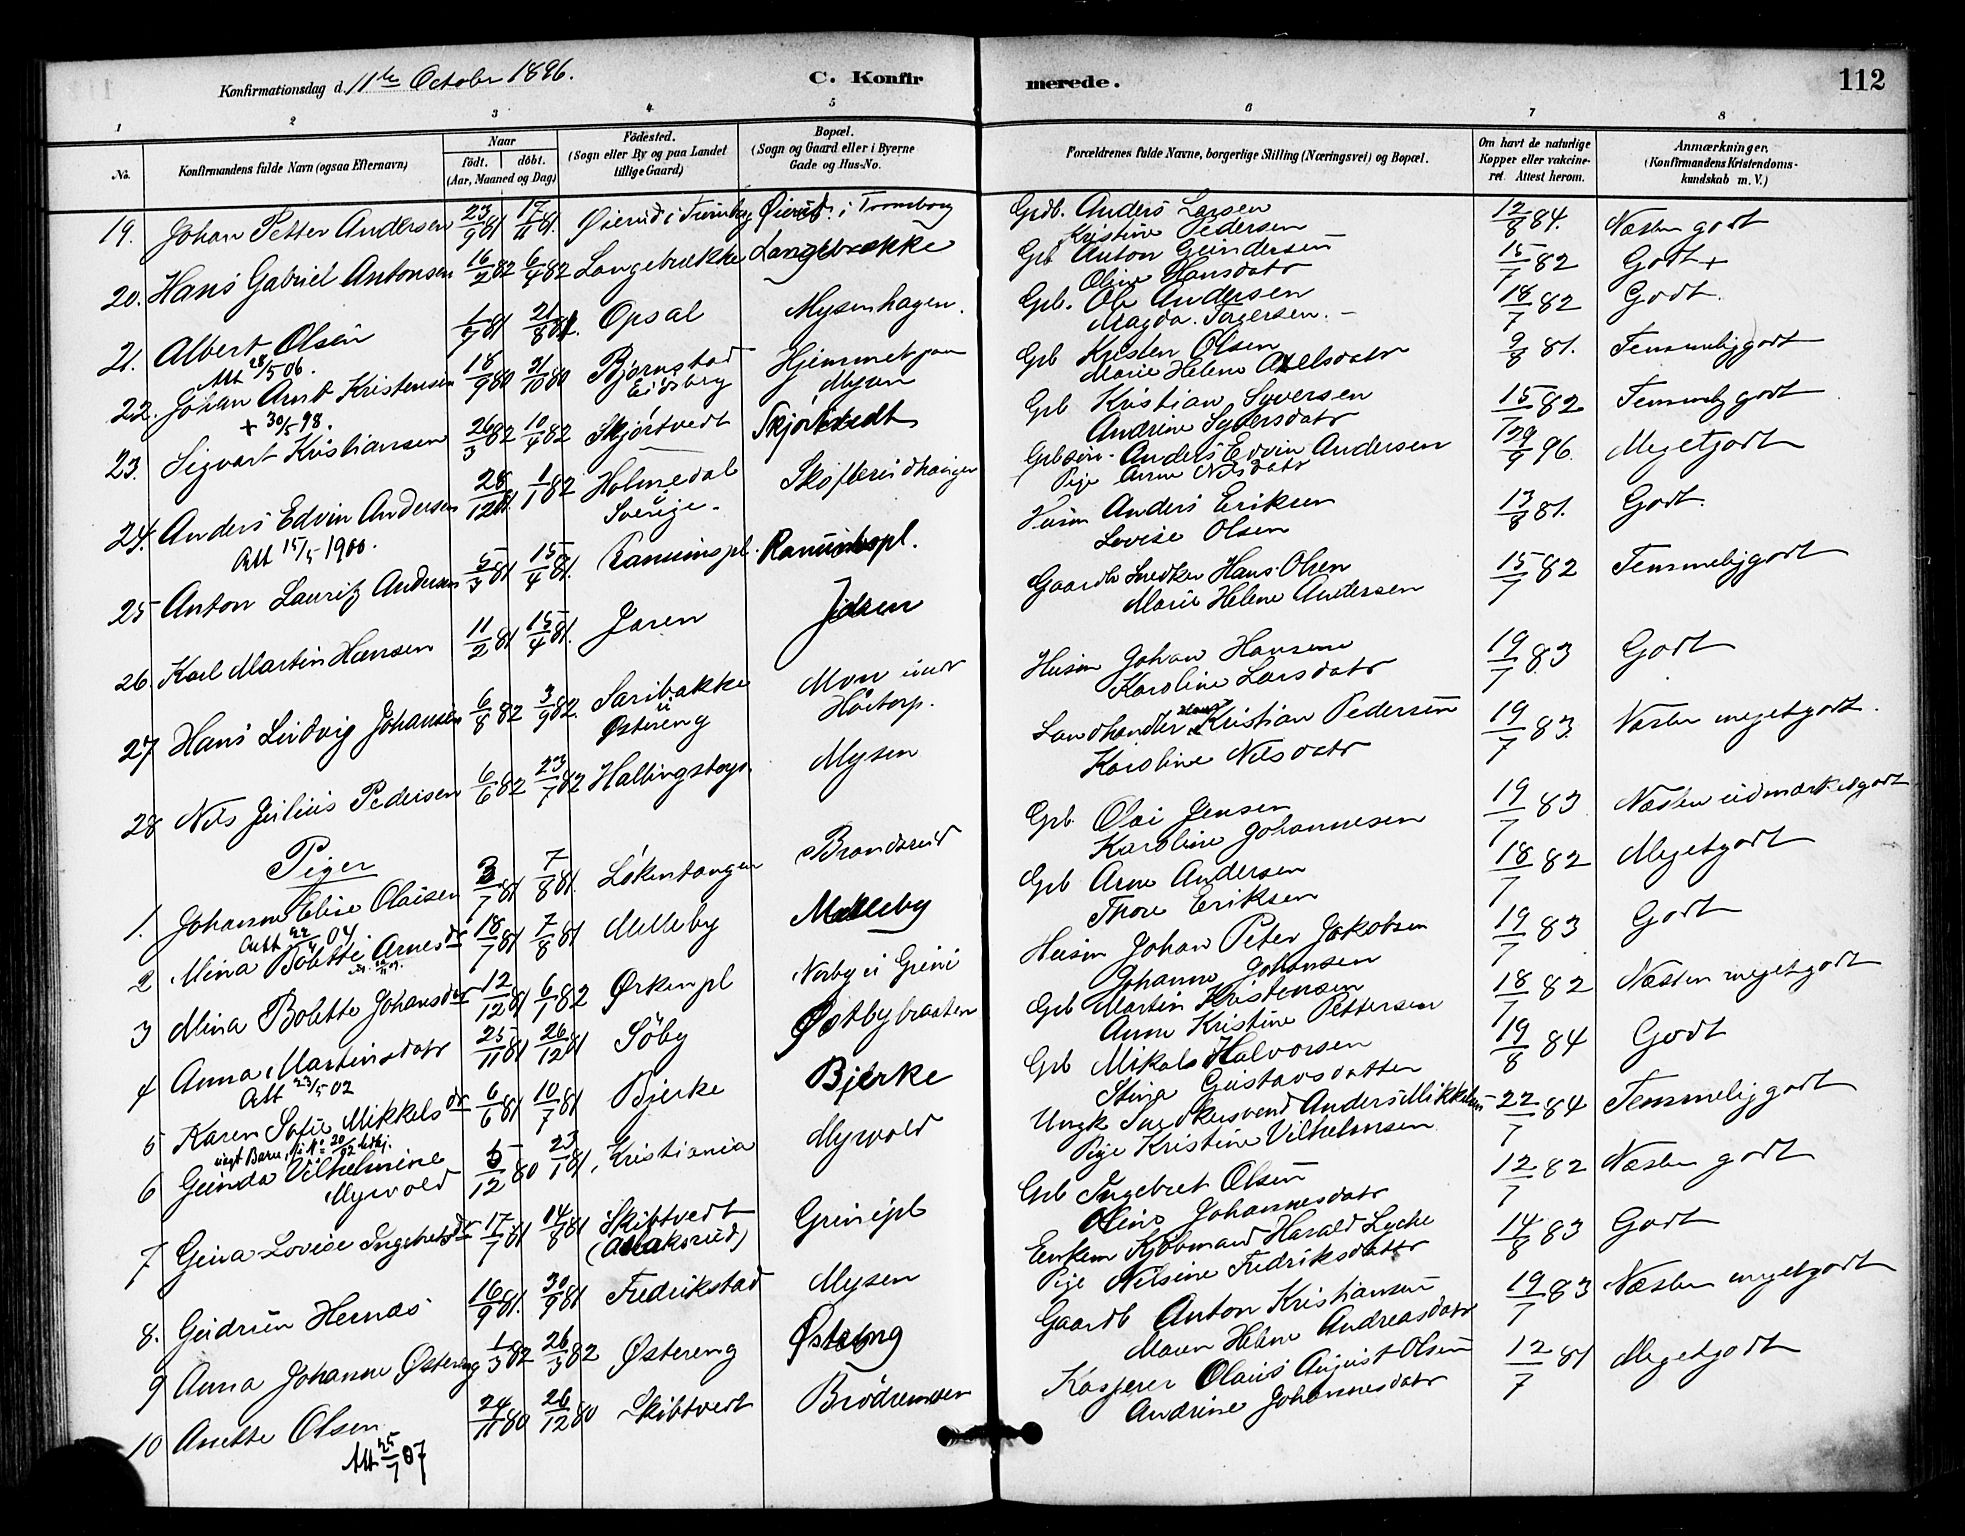 Konfirmationsdag d. 11te October 1896. C. Konfir merede. 112
1 2 3 4 5 6 7 8
No. Konfirmandens fulde Navn (ogsaa Efternavn) Naar födt. döbt. (Aar, Maaned og Dag) Födested. (Sogn eller By og paa Landet tillige Gaard) Bopæl. (Sogn og Gaard eller i Byerne Gade og Hus-No. Forældrenes fulde Navne, borgerlige Stilling (Næringsvei) og Bopæl. Om havt de naturlige Kopper eller vakcineret. Attest herom. Anmærkninger, (Konfirmandens Kristendomskundskab m. V.)
19. Johan Petter Andersen 23/9 81 17/11 81. Øierud i Tromborg Øierud i Tromborg Grdb. Anders Larsen 12/8 84. Næsten godt
Kristine Pedersen
20. Hans Gabriel Antonsen 16/2 82 6/4 82 Langebrække Langebrække Grb Anton Gundersen 15/7 82 Godt +
Oline Hansdatr
21. Albert Olsen 1/7 81 21/8 81. Opsal Mysenhagen. Grb. Ole Andersen 18/7 82 Godt.
Att 28/5 06. Magda
22. Johan Arnt Kristensen 18/9 80 31/10 80 Bjørnstad Eidsberg Hjemmet paa Mysen Grb Kristen Olsen 9/8 81. Temmelig godt
+ 30/5 98. Marie Helene Axelsdatr
23. Sigvart Kristiansen 26/3 82 10/4 82 Skjørtvedt Skjørtvedt Grb Kristian Syversen 15/7 82 Temmelig godt
Andrine Syversdatr
24. Anders Edvin Andersen 28/12 81. 1/1 82 Holmedal Sverige. Grbsøn. Anders Edvin Andersen 29/9 96. Megetgodt
Att 15/5 1900. Pige Anne Nilsdatr
25 Anton Lauritz Andersen 5/3 81 15/4 81. Ramunspl. Ramunspl. Husm Anders Eriksen 13/8 81. Godt.
Lovise Olsen
26. Karl Martin Hansen 11/2 81 15/4 81. Jaren Jaren Gaardb Snedker Hans Olsen 15/7 82 Temmeliggodt
Marie Helene Andersen
27 Hans Ludvig Johansen 6/8 82 3/9 82. Saribakke u Østereng Mon under Hörtorp. Husm Johan Hansen 19/7 83 Godt
Karoline Larsdatr
28 Nils Julius Pedersen 6/6 82 23/7 82 Mysen Landhandler Kristian Pedersen 19/7 83 Næsten megetgodt.
Karoline Nilsdatr
Piger
1. Johanne Elise Olaisen 3/7 81 7/8 81. Løkentangen Brandsrud Grb. Olai Jensen 19/7 83 Næsten udmærketgodt
Att 22/4 04. Karoline Johannesen
2 Mina Bolette Arnesdr 18/7 81 7/8 81 Melleby Melleby Grb Arne Andersen 18/7 82 Megetgodt
Thore Eriksen
3 Mina Bolette Johansdr 12/12 81 6/1 82 Ørkenpl Nørby i Grini Husm Johan Peter Jakobsen 19/7 83 Godt
Johanne Johansen
4 Anna Martinsdatr 25/11 81 26/12 81 Söby Østbybraaten Grb Martin Kristensen 18/7 82 Næsten megetgodt
Att 23/5 02 Anne Kristine Pettersen
5 Karen Sofie Mikkelsdr 6/6 81 10/7 81 Bjerke Bjerke Grb Mikal Halvorsen 19/8 84 Godt
uægt Barn Stina Gustavsdatter
6 Gunda Vilhelmine Myrvold 5/12 80 23/1 81. Kristiania Myrvold Ungk Snedkersvend Anders Mikkelsen 22/7 84 Temmeliggodt
Pige Kristine Vilhelmsen
7 Gina Lovise Ingebretsdr 17/7 81 14/8 81 Skibtvedt (Aslaksrud) Grinipl Grb Ingebret Olsen 12/7 82 Næsten godt
Oline Johannesdatr
8. Gudrun Hernæs 16/9 81. 30/9 81 Fredrikstad Mysen Enkem Kjøbmand Harald Lyche 14/8 83 Godt
Pige Nilsine Fredriksdatter
9 Anna Johanne Østereng 1/3 82 26/3 82 Østereng Østereng Gaardb Anton Kristiansen 19/7 83 Næsten megetgodt
Maren Helene Andreasdatr
10 Anette Olsen 24/11 80 26/12 80 Skibtvedt Brödremosen Kasserer Olaus August Olsen 12/7 81 Megetgodt
Att 25/7 07 Andrine Johannesdatr